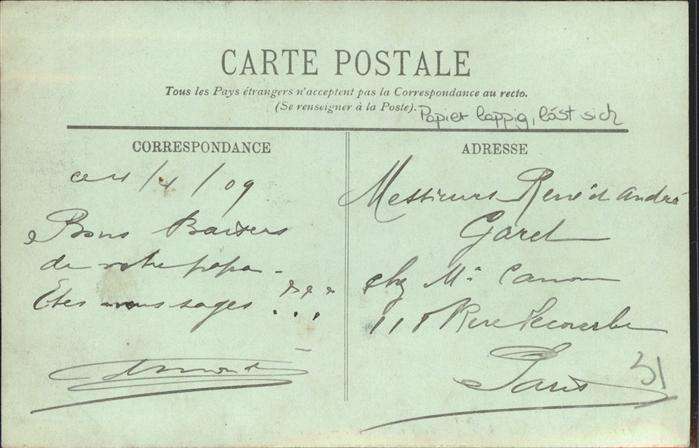 CARTE POSTALE
Tous les Pays étrangers n'acceptent pas la Correspondance au recto.
(Se renseigner à la Poste).
Papier lappig, löst sich
CORRESPONDANCE
ADRESSE
/09
Bons Baisers
de votre papa -
Etes vous sages ???
Messieurs René et André
Garet
chez Mr
118 Rue Lecourbe
Paris
51